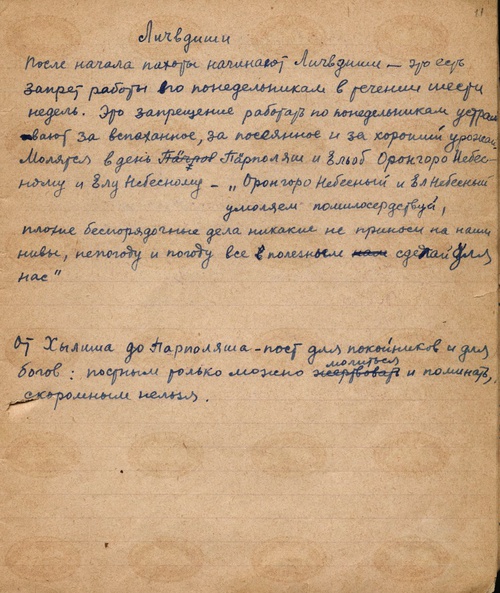 11
Личвдиши
После начала пахоты начинают Личвдиши – это есть
запрет работы по понедельникам в течении шести
недель. Это запрещение работать по понедельникам устраи
вают за вспаханное, за посеянное и за хороший урожай.
Молятся в день Парполяш и Ельоб Оронгоро Небес-
ному и Елу Небесному – „Оронгоро Небесный и Ел Небесный
умоляем помилосердствуй,
плохие беспорядочные дела никакие не приноси на наши
нивы, непогоду и погоду все в полезным сделай для
нас"
От Хылиша до Парполяша – пост для покойников и для
богов: постным только можно молиться и поминать,
скоромным нельзя.